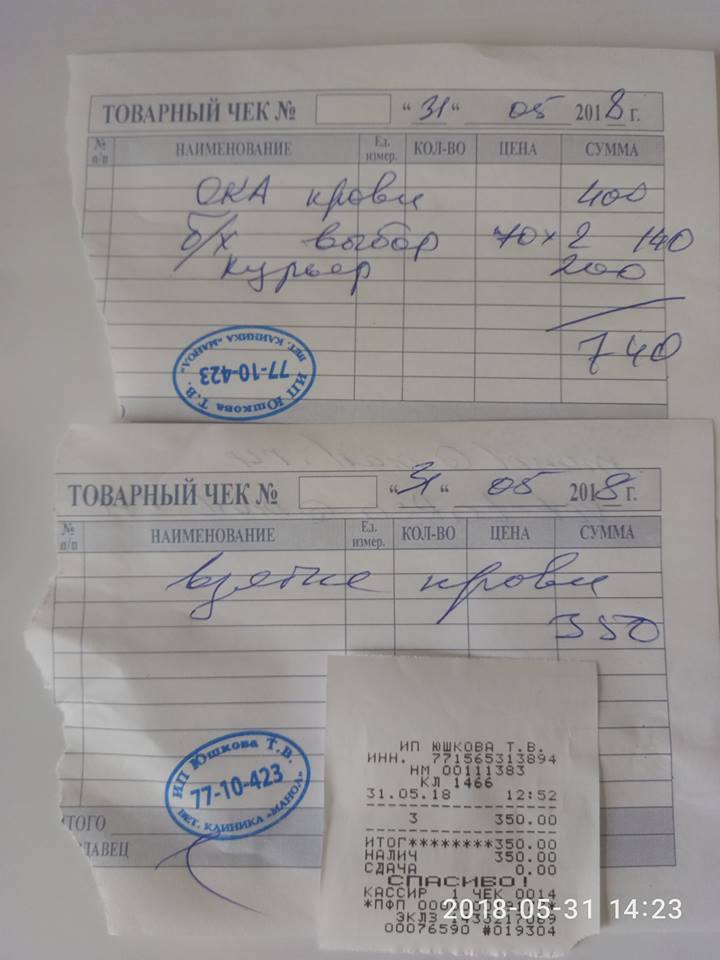 ТОВАРНЫЙ ЧЕК № "31" 05 2018 г.
№ п/п НАИМЕНОВАНИЕ Ед. измер. КОЛ-ВО ЦЕНА СУММА
ОКА крови 400
б/х выбор 70×2 140
Курьер 200
740
ИП Юшкова Т.В. ВЕТ. КЛИНИКА «МАНОЛ»
77-10-423
ТОВАРНЫЙ ЧЕК № "31" 05 2018 г.
№ п/п НАИМЕНОВАНИЕ Ед. измер. КОЛ-ВО ЦЕНА СУММА
Взятие крови
350
ИП Юшкова Т.В.
77-10-423
ВЕТ. КЛИНИКА «МАНОЛ»
ИТОГО
ДАВЕЦ
ИП ЮШКОВА Т.В.
ИНН. 771565313894
НМ 00111383
КЛ 1466
31.05.18 12:52
3 350.00
ИТОГ********350.00
НАЛИЧ 350.00
СДАЧА 0.00
СПАСИБО!
КАССИР 1 ЧЕК 0014
*ПФП
ЭКЛЗ
00076590 #019304
2018-05-31 14:23